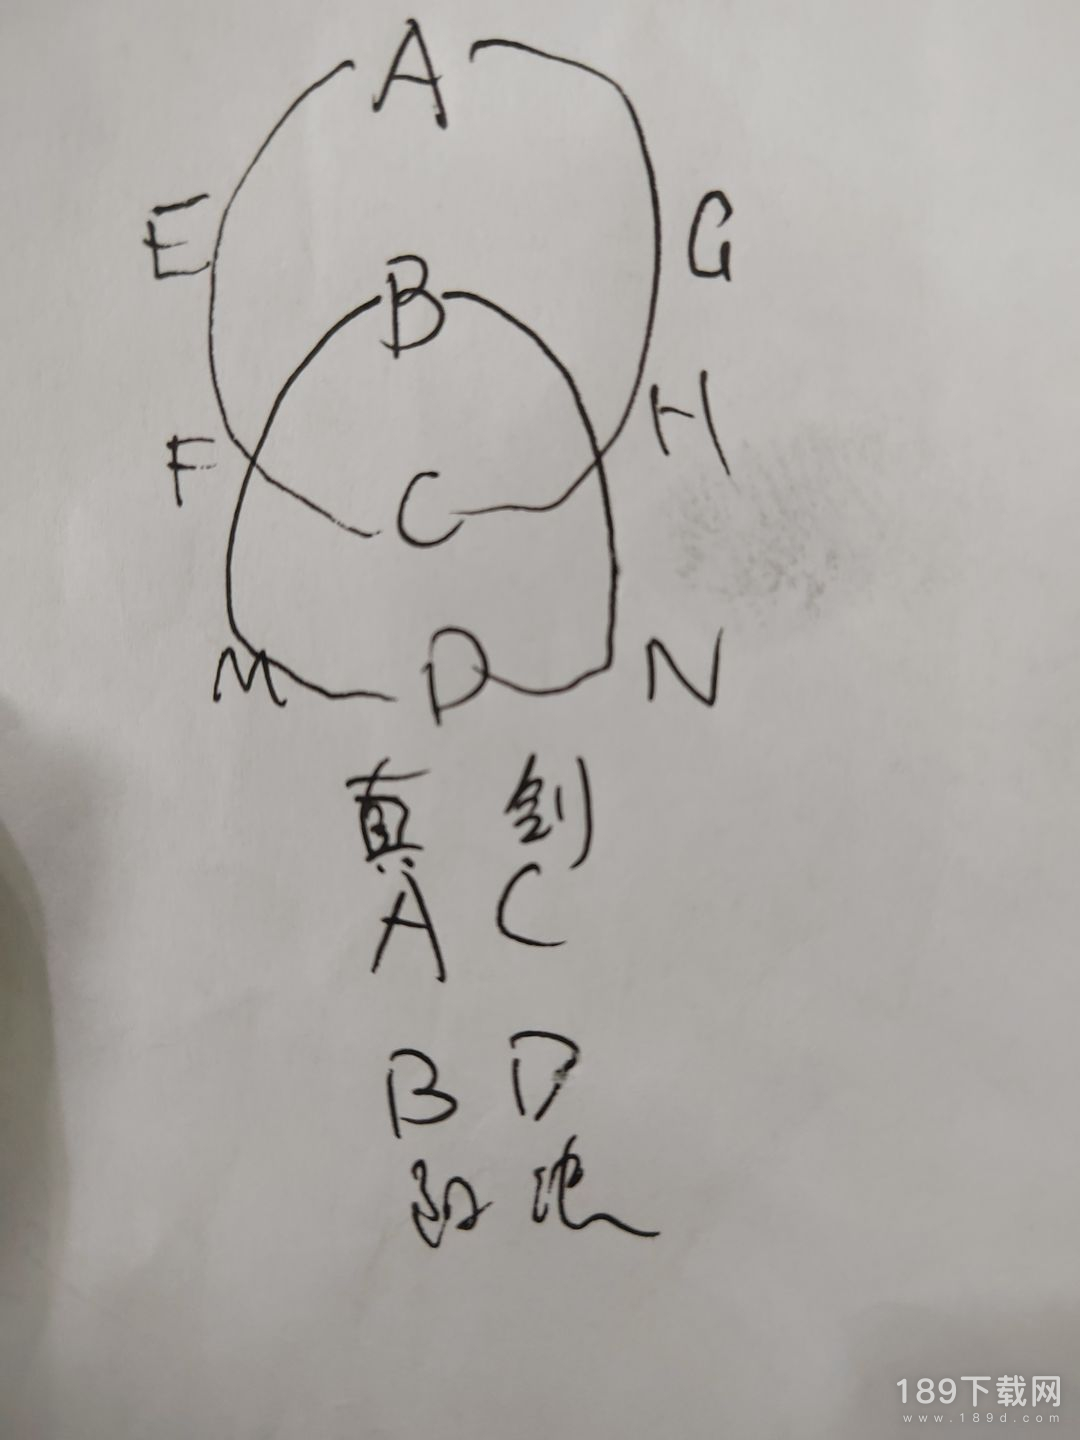 A
E G
B
F H
C
M D N
真 剑
A C
B D
阳 池
189下载网
www.189d.com